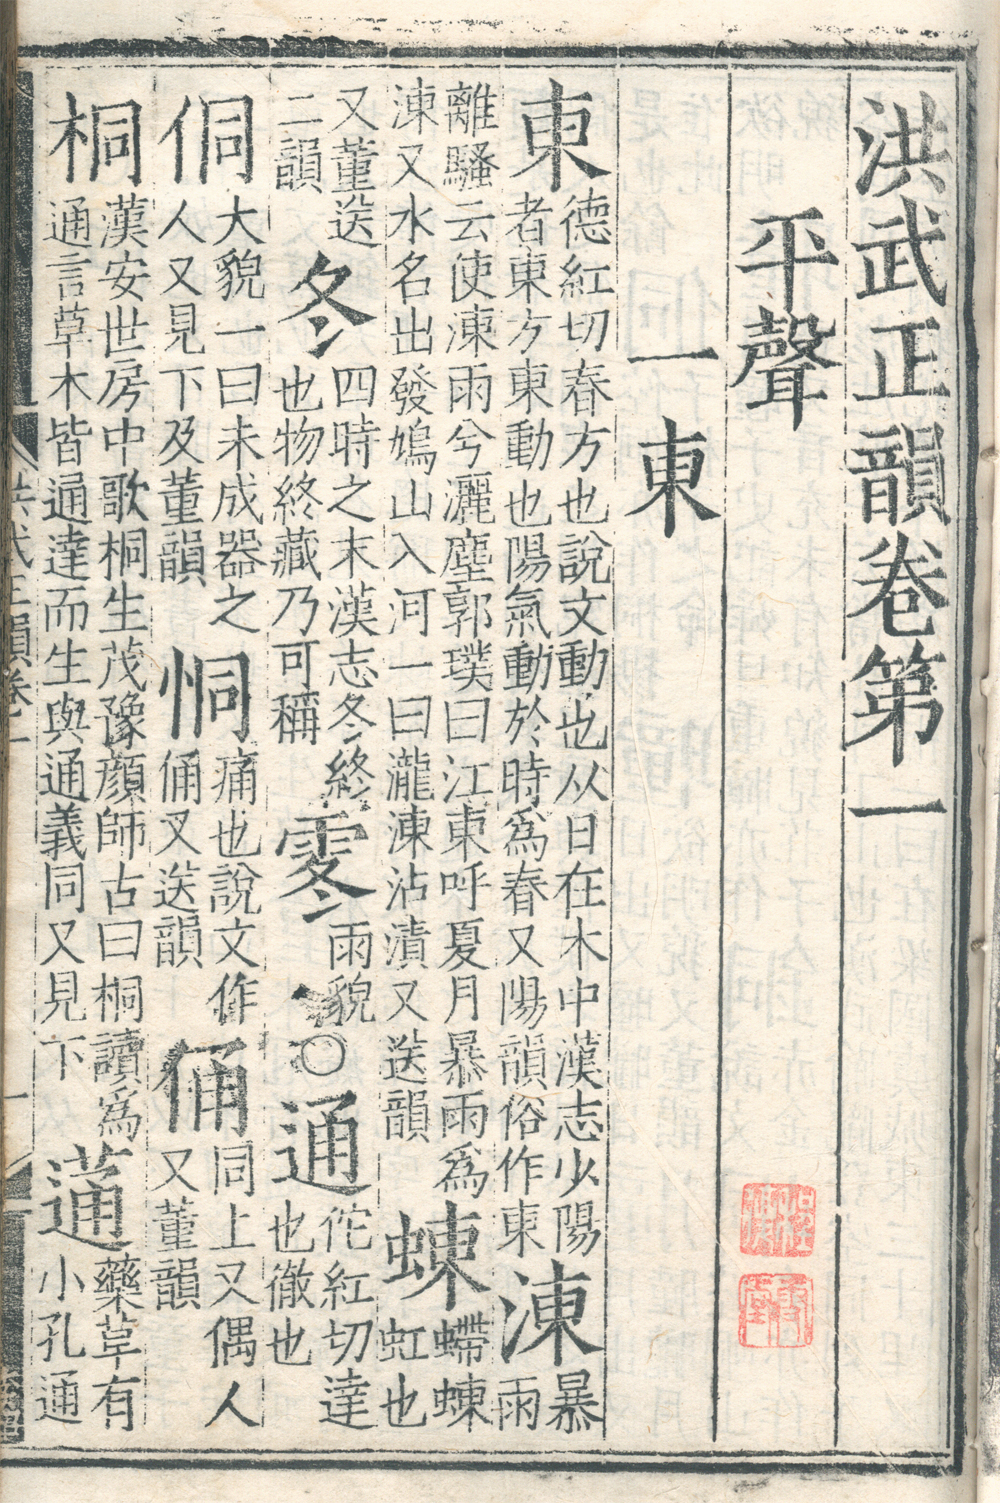 洪武正韻卷第一
平聲
一東
東德紅切春方也說文動也从日在木中漢志少陽者東方東動也陽氣動於時爲春又陽韻俗作東涷暴雨
離騷云使涷雨兮灑塵郭璞曰江東呼夏月暴雨爲涷又水名出發鳩山入河一曰瀧涷沾漬又送韻蝀螮蝀虹也
又董送二韻冬四時之末漢志冬終也物終藏乃可稱䨦雨貌〇通佗紅切達也徹也
侗大貌一曰未成器之人又見下及董韻恫痛也說文作俑又送韻俑同上又偶人又董韻
桐漢安世房中歌桐生茂豫顔師古曰桐讀爲通言草木皆通達而生與通義同又見下蓪藥草有小孔通
洪武正韻卷一
一